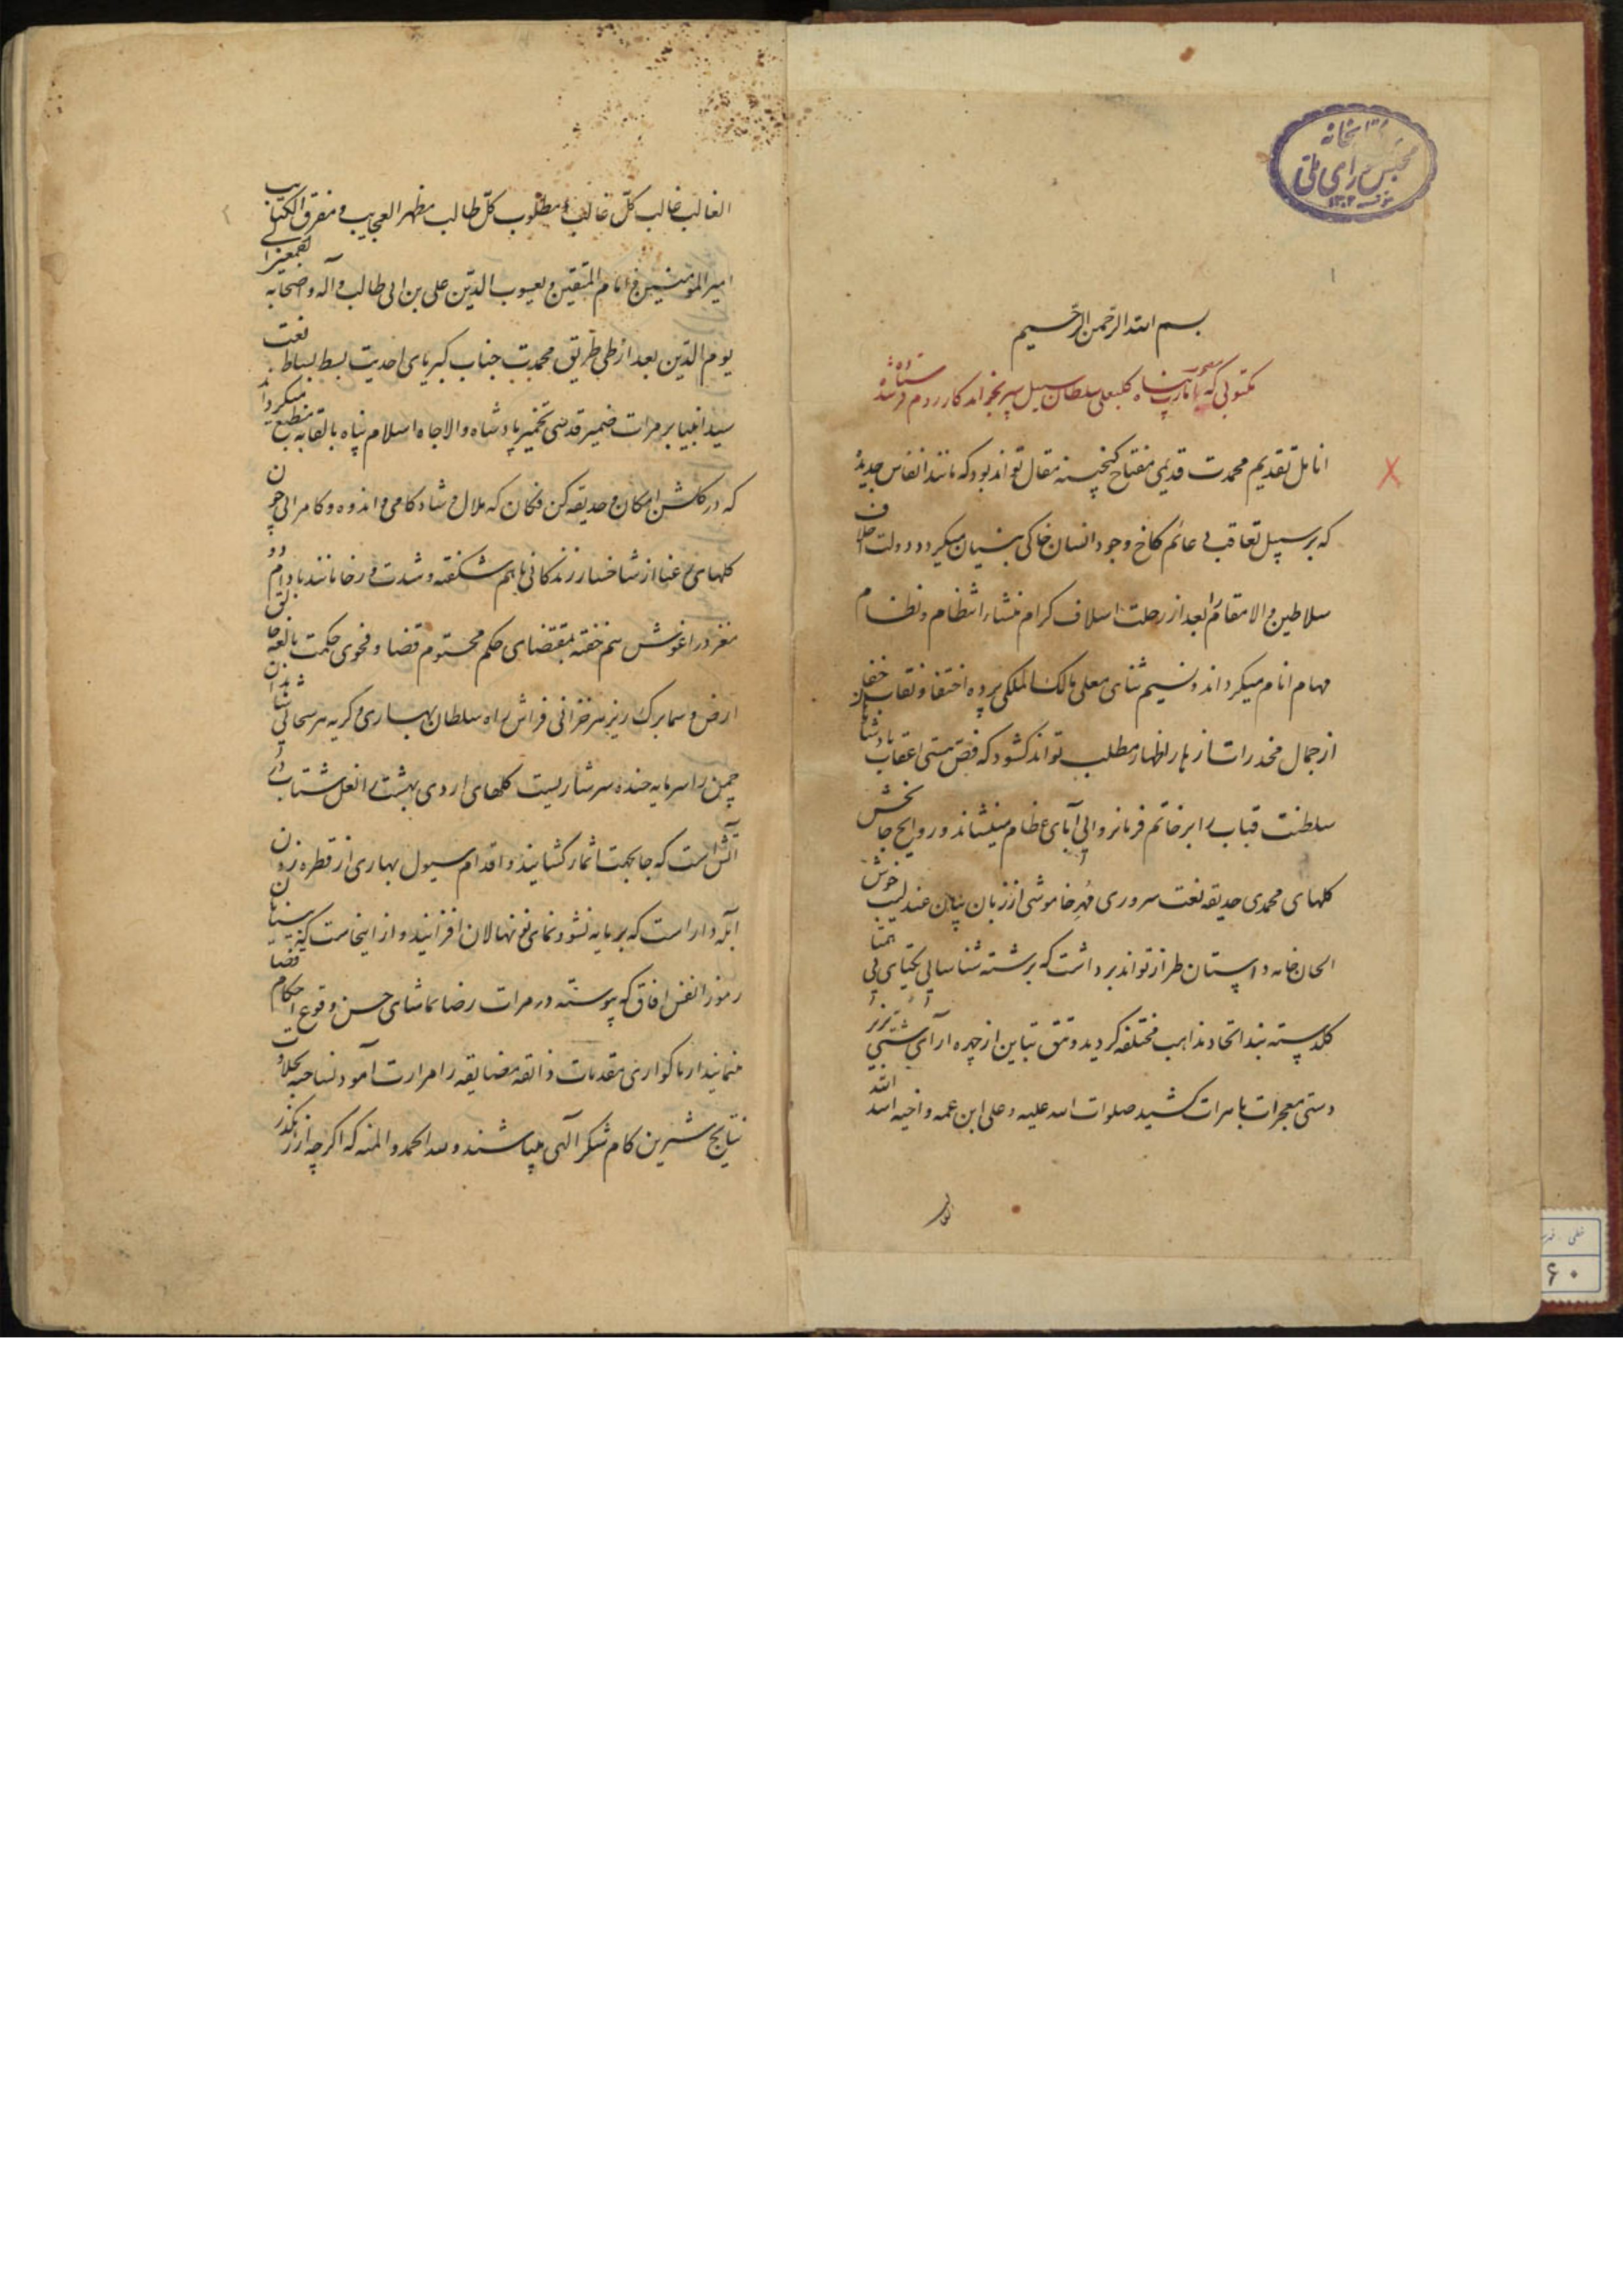 کتابخانه
مجلس شورای ملی
۱
بسم الله الرحمن الرحیم
مکتوبی که کلبعلی سلطان بخواندکار روم فرستاده شد
انامل تقدیم محمدت قدیمی مفتاح کنجینه مقال تواند بود که مانند انفاس جدیده
که بر سبیل تعاقب دعائم کاخ وجود انسان خاکی بنیان میکردد دولت اخلاف
سلاطین والا مقام را بعد از رحلت اسلاف کرام منشاء انتظام و نظام
مهام انام میکرداند و نسیم ثنای معلی مالک الملکی پرده اختفا و نقاب خفا
از جمال مخدرات ازهار اظهار مطلب تواند کشود که فص هستی اعقاب پادشاهان
سلطنت قباب را بر خاتم فرمانروایی آبای عظام مینشاند و روایح جان بخش
کلهای محمدی حدیقه نعت سروری مُهرِ خاموشی از زبان بیان عندلیب خوش
الحان خامه داستان طراز تواند برداشت که برشته شناسایی یکتای بی همتا
کلدسته بند اتحاد مذاهب مختلفه کردید و تتق تباین از چهره آرای شتی
دستی معجزات باهرات کشید صلوات الله علیه و علی ابن عمه و اخیه اسد الله
۲
الغالب غالب کلّ غالب و مطلوب کلّ طالب مظهر العجایب و مفرق الکتایب
امیر المؤمنین و امام المتقین و یعسوب الدّین علی بن ابی طالب و آله و اصحابه
یوم الدّین بعد از طی طریق محمدت جناب کبریای احدیت بسط بساط نعت
سید انبیا بر مرات ضمیر قدسی تخمیر پادشاه والاجاه اسلام پناه بالقابه منطبع میکرداند
که در کلشن امکان و حدیقه کن فکان که ملال و شادکامی و اندوه و کامرانی چون
کلهای رعنا از شاخسار زندکانی باهم شکفته و شدت و رخا مانند بادام دو
مغز در اغوش هم خفته بمقتضای حکم محتوم قضا و فحوی حکمت بالغه خالق
ارض و سما برک ریز هر خزانی فراش راه سلطان بهاری و کریه هر سحابی
چمن را سرمایه خنده سرشاریست کلهای اردی بهشت را نعل شتاب در
آتش است که جا بجهت اثمار کشایند و اقدام سیول بهاری از قطره زدن
آبله دار است که بر مایه نشو و نمای نو نهالان افزایند و از اینجاست که بینایان
رموز انفس و افاق که پیوسته در مرات رضا تماشای حسن وقوع احکام قضا
مینمایند از ناکواری مقدمات ذائقه مضایقه را مرارت آمود نساخته بحلاوت
نتایج شیرین کام شکر آلهی میباشند و لله الحمد و المنه که اکرچه از
۶۰